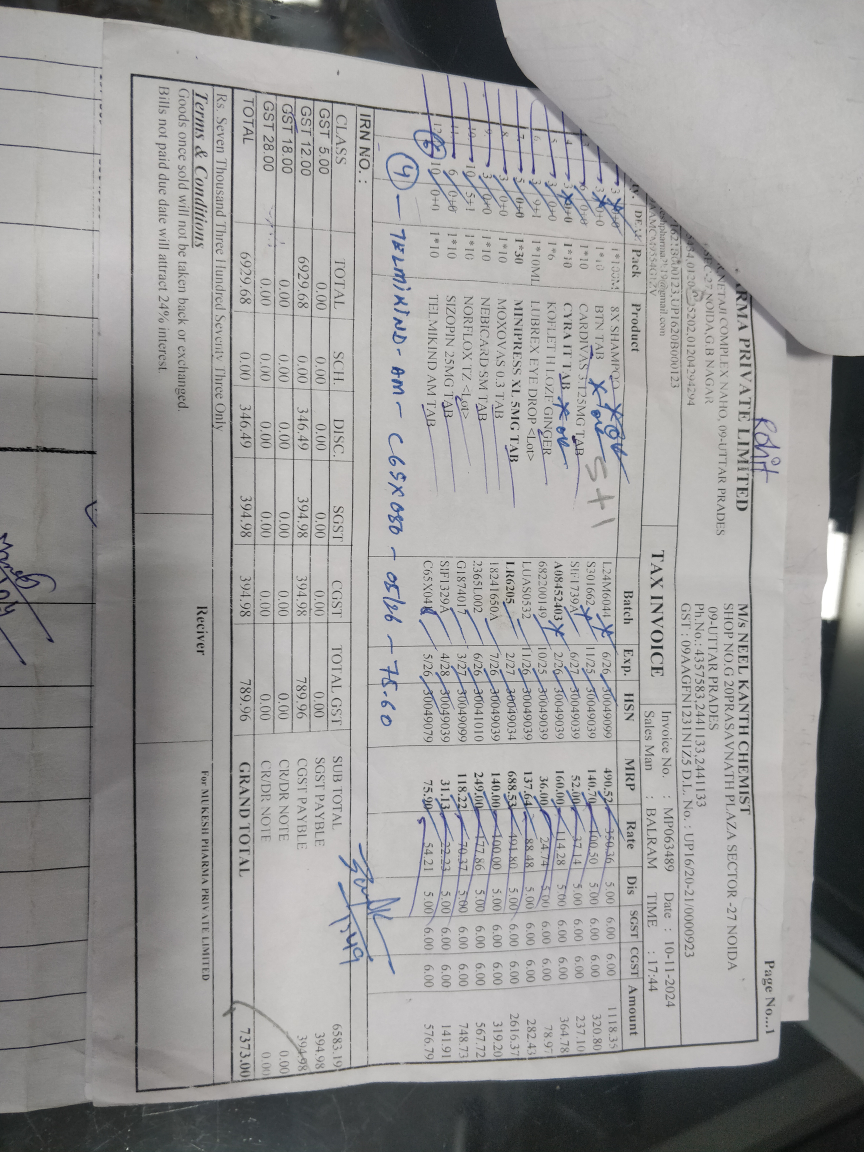 Rohit
ARMA PRIVATE LIMITED
NETAJI COMPLEX NAHO, 09-UTTAR PRADES
SEC-27 NOIDA,G B NAGAR
5202,01204294294
Page No...1
M/s NEEL KANTH CHEMIST
SHOP NO.G 20PRASAVNATH PLAZA SECTOR -27 NOIDA
09-UTTAR PRADES
Ph.No.:4357583,2441133,2441133
GST : 09AAGFN1231N1Z5 D.L. No. : UP16/20-21/0000923
TAX INVOICE
Invoice No. : MP063489 Date : 10-11-2024
Sales Man : BALRAM TIME : 17:44
Pack Product Batch Exp. HSN MRP Rate Dis SGST CGST Amount
8X SHAMPOO 6/26 30049099 490.52 350.36 5.00 6.00 6.00 1118.35
BTN TAB 11/25 30049039 140.70 100.50 5.00 6.00 6.00 320.80
1*10 CARDIVAS 3.125MG TAB SIF1739A 6/27 30049039 52.00 37.14 5.00 6.00 6.00 237.10
1*10 CYRA IT TAB A08452403 2/26 30049039 160.00 114.28 5.00 6.00 6.00 364.78
1*6 KOFLET H LOZE GINGER 682200149 10/25 30049039 36.00 24.74 5.00 6.00 6.00 78.97
1*10ML LUBREX EYE DROP <Lot> LUAS0532 11/26 30049039 137.64 88.48 5.00 6.00 6.00 282.43
1*30 MINIPRESS XL 5MG TAB LR6205 2/27 30049034 688.53 491.80 5.00 6.00 6.00 2616.37
1*10 MOXOVAS 0.3 TAB 18241650A 7/26 30049039 140.00 100.00 5.00 6.00 6.00 319.20
1*10 NEBICARD SM TAB 2365L002 6/26 30041010 249.00 177.86 5.00 6.00 6.00 567.72
1*10 NORFLOX TZ <Lot> G1874017 3/27 30049099 118.22 70.37 5.00 6.00 6.00 748.73
1*10 SIZOPIN 25MG TAB SIF1329A 4/28 30049039 31.13 22.23 5.00 6.00 6.00 141.91
1*10 TELMIKIND AM TAB 5/26 30049079 75.90 54.21 5.00 6.00 6.00 576.79
5+1
4 - TELMIKIND - AM - C65X080 - 05/26 - 75.60
IRN NO. :
CLASS TOTAL SCH. DISC. SGST CGST TOTAL GST
GST 5.00 0.00 0.00 0.00 0.00 0.00 0.00
GST 12.00 6929.68 0.00 346.49 394.98 394.98 789.96
GST 18.00 0.00 0.00 0.00 0.00 0.00 0.00
GST 28.00 0.00 0.00 0.00 0.00 0.00 0.00
TOTAL 6929.68 0.00 346.49 394.98 394.98 789.96
SUB TOTAL 6583.19
SGST PAYBLE 394.98
CGST PAYBLE 394.98
CR/DR NOTE 0.00
CR/DR NOTE 0.00
GRAND TOTAL 7373.00
Rs. Seven Thousand Three Hundred Seventy Three Only
Terms & Conditions
Goods once sold will not be taken back or exchanged.
Bills not paid due date will attract 24% interest.
Reciver
For MUKESH PHARMA PRIVATE LIMITED